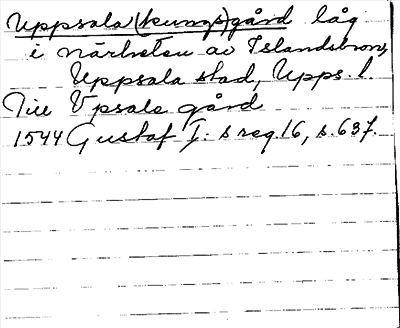 Uppsala (kungs)gård låg
i närheten av Islandsbron,
Uppsala stad, Upps. l.
Till Vpsala gård
1544 Gustaf I: s reg. 16, s. 637.